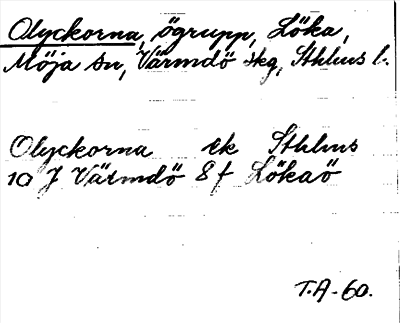 Olyckorna, ögrupp, Löka,
Möja sn, Värmdö skg, Sthlms l.
Olyckorna ek Sthlms
10 J Värmdö 8 f Lökaö
T.A-60.